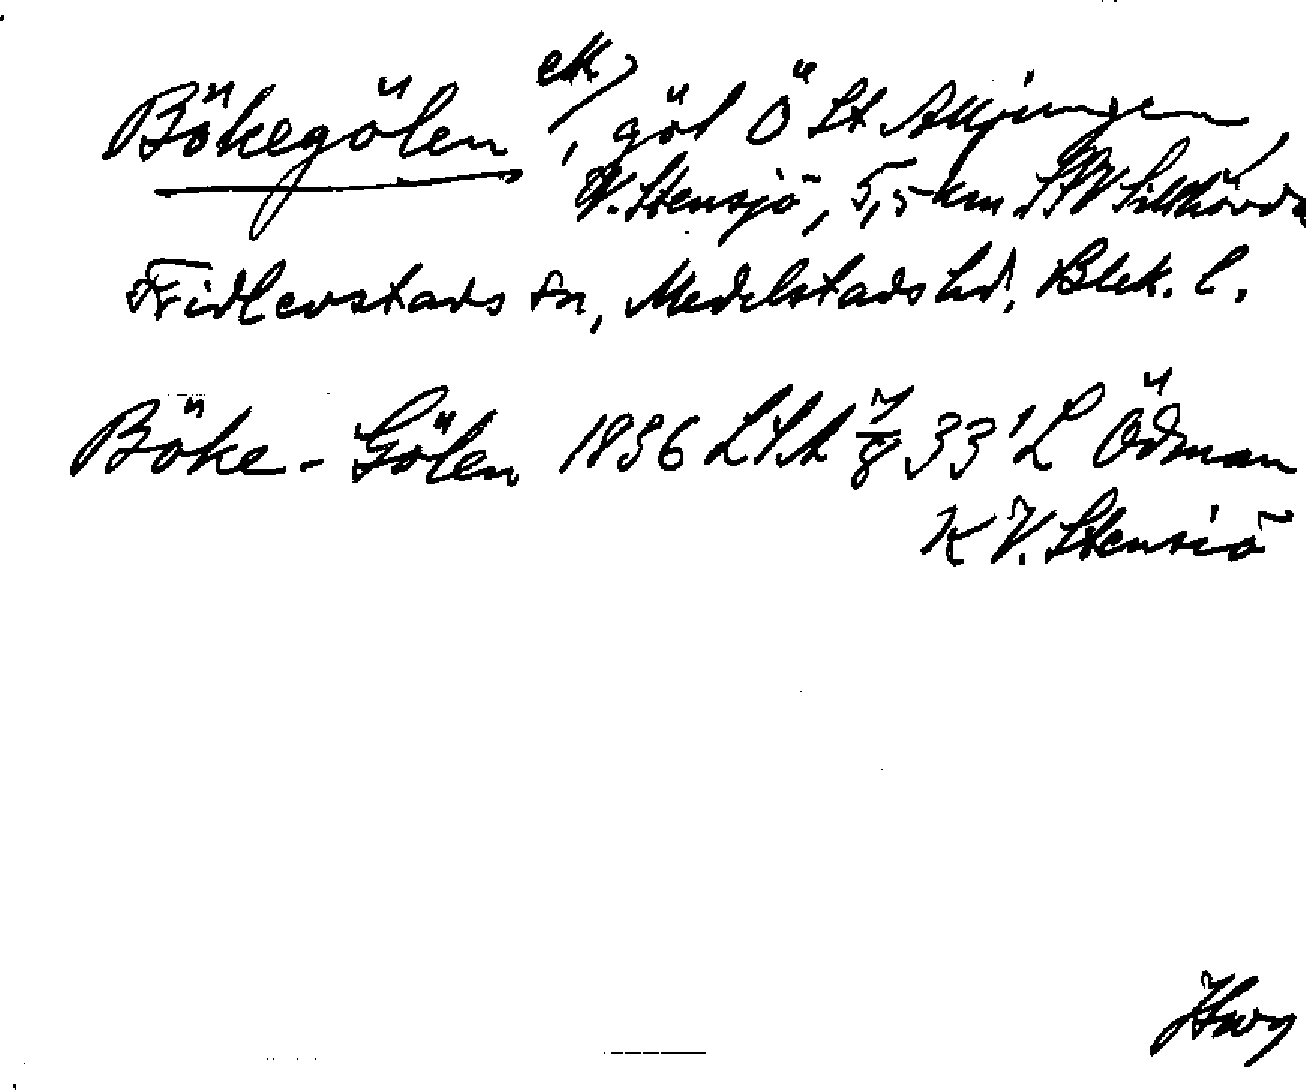 ek
Bökegölen, göl Ö St. Alljungen,
V. Stensjö, 5,5 km SSV Sillhövda
Fridlevstads sn, Medelstads hd, Blek. l.
Böke-Gölen 1836 LSA 7/8 33'L Ödman
K V. Stensjö